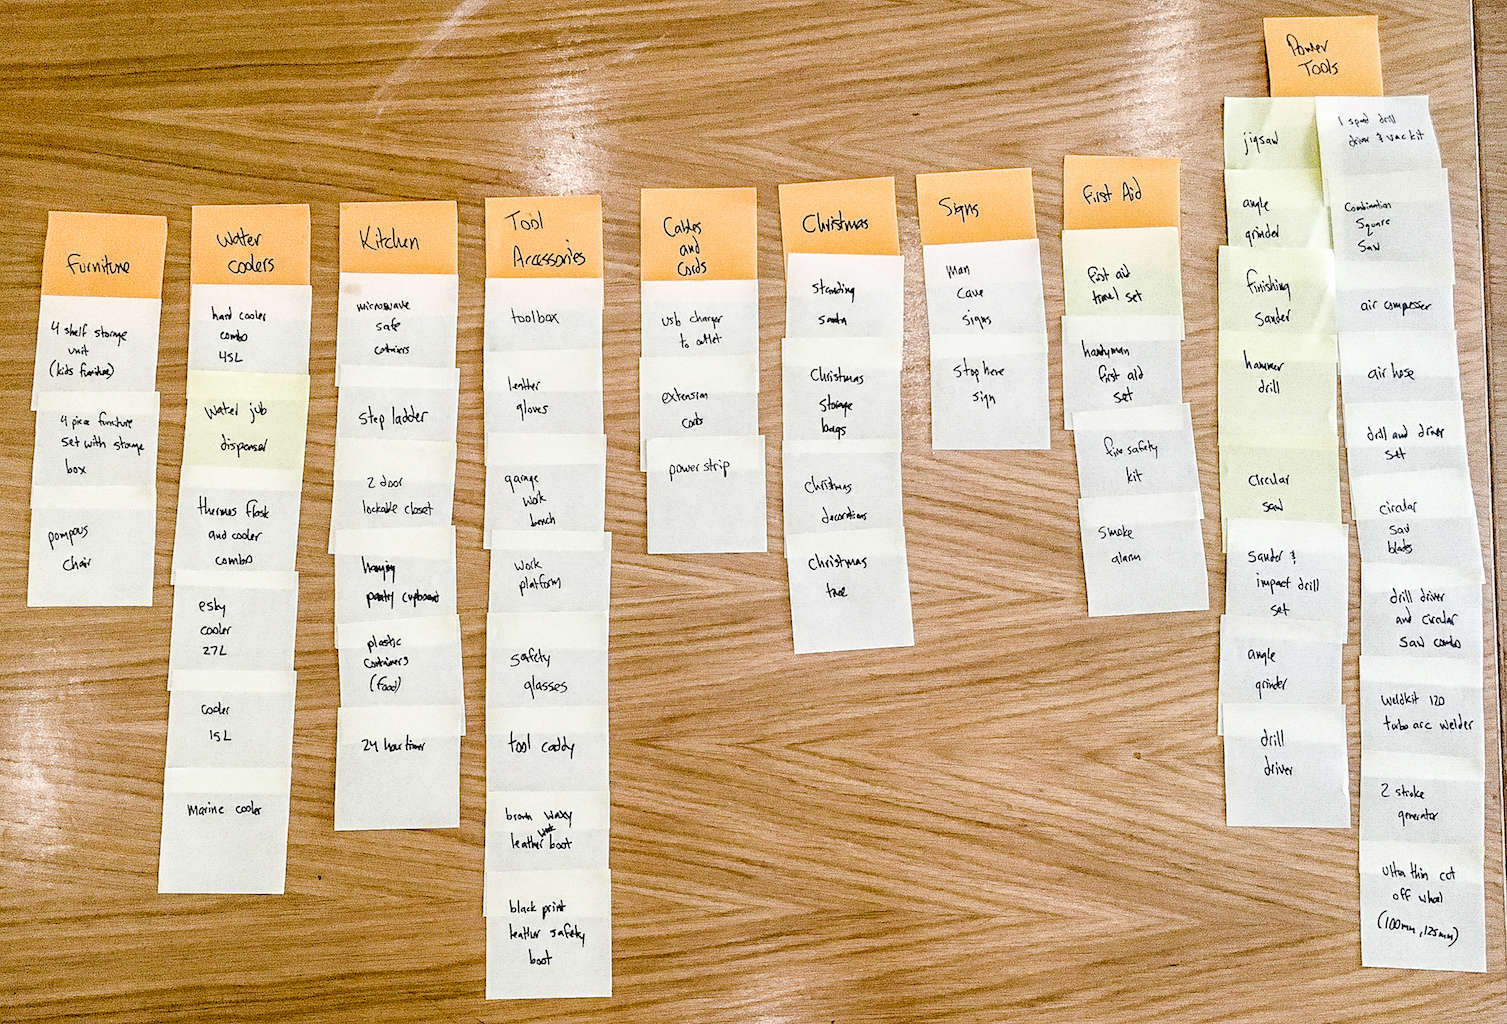 Furniture
4 shelf storage
unit
(kids furniture)
4 piece furniture
set with storage
box
pompous
chair
Water
coolers
hard cooler
combo
45L
Water jub
dispenser
thermos flask
and cooler
combo
esky
cooler
27L
cooler
15L
Marine cooler
Kitchen
microwave
safe
containers
step ladder
2 door
lockable closet
hanging
pantry cupboard
plastic
containers
(food)
24 hour timer
Tool
Accessories
toolbox
leather
gloves
garage
work
bench
work
platform
safety
glasses
tool caddy
brown waxy
work
leather boot
black print
leather safety
boot
Cables
and
Cords
usb charger
to outlet
extension
cords
power strip
Christmas
Standing
santa
Christmas
Storage
bags
Christmas
decorations
Christmas
tree
Signs
Man
Cave
signs
Stop here
sign
First Aid
first aid
travel set
handyman
first aid
set
fire safety
kit
smoke
alarm
Power
Tools
jigsaw
angle
grinder
finishing
sander
hammer
drill
circular
saw
Sander &
impact drill
set
angle
grinder
drill
driver
1 speed drill
driver & vac kit
Combination
Square
Saw
air compesser
air hose
drill and driver
set
circular
saw
blades
drill driver
and circular
saw combo
Weldkit 120
turbo arc welder
2 stroke
generator
Ultra thin cut
off wheel
(100mm, 125mm)